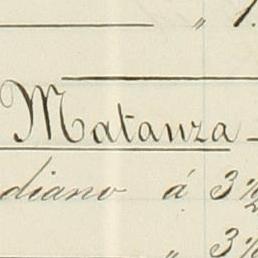 „ 1.
Matanza -
diano á 3 1/2
„ 3 1/2